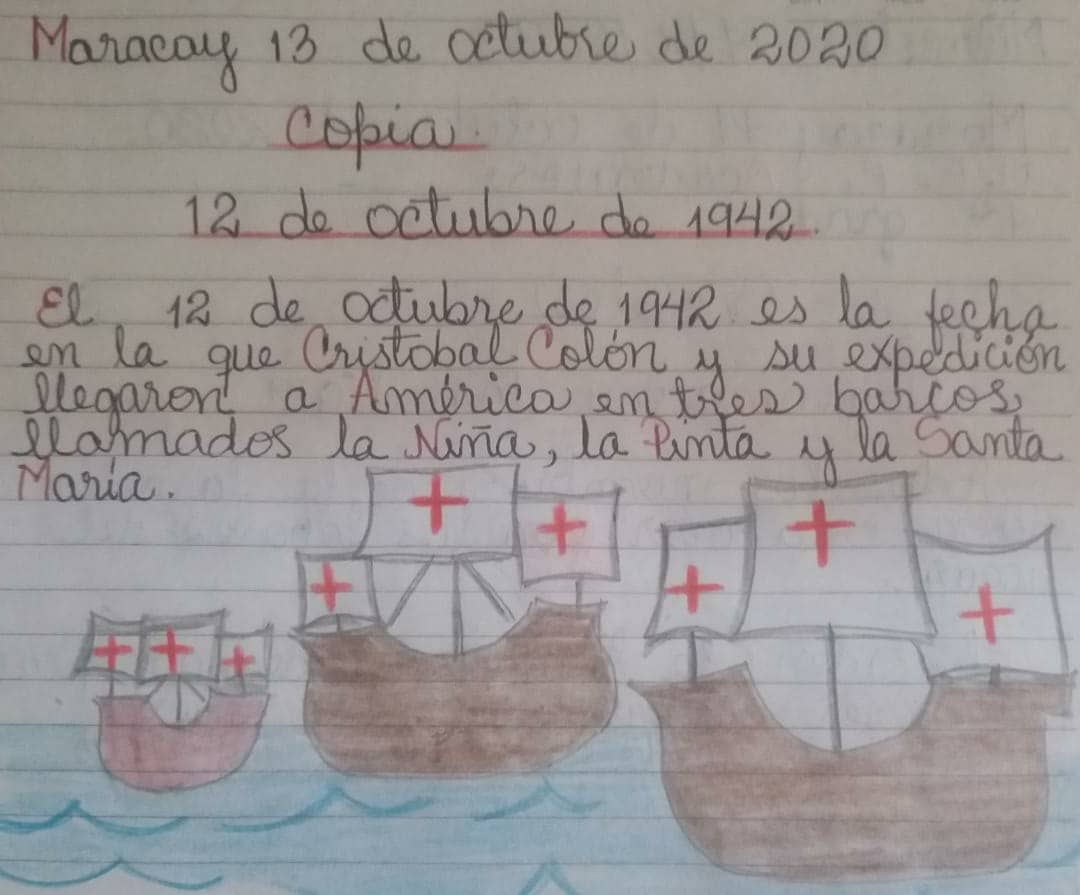 Maracay 13 de octubre de 2020
Copia.
12 de octubre de 1942.
El 12 de octubre de 1942 es la fecha
en la que Cristobal Colón y su expedición
llegaron a América en tres barcos
llamados la Niña, la Pinta y la Santa
María.